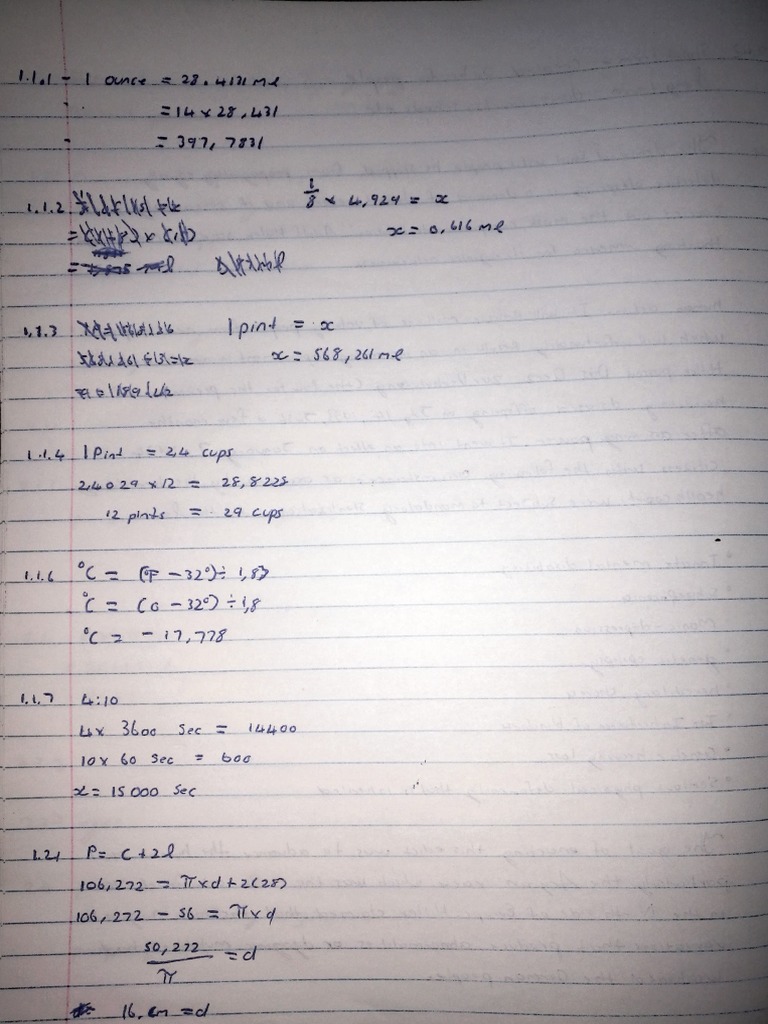 1.1.1 - 1 ounce = 28.4131 ml
= 14 x 28,431
= 397,7831
1.1.2 1/8 x 4,924 = x
x = 0,616 ml
1.1.3 1 pint = x
x = 568,261 ml
1.1.4 1 Pint = 2,4 cups
2,4029 x 12 = 28,8228
12 pints = 29 cups
1.1.6 °C = (°F - 32°) ÷ 1,8
°C = (0 - 32°) ÷ 1,8
°C = - 17,778
1.1.7 4:10
4 x 3600 sec = 14400
10 x 60 sec = 600
x = 15 000 sec
1.21 P = C + 2l
106,272 = π x d + 2(28)
106,272 - 56 = π x d
50,272/π = d
16 cm = d